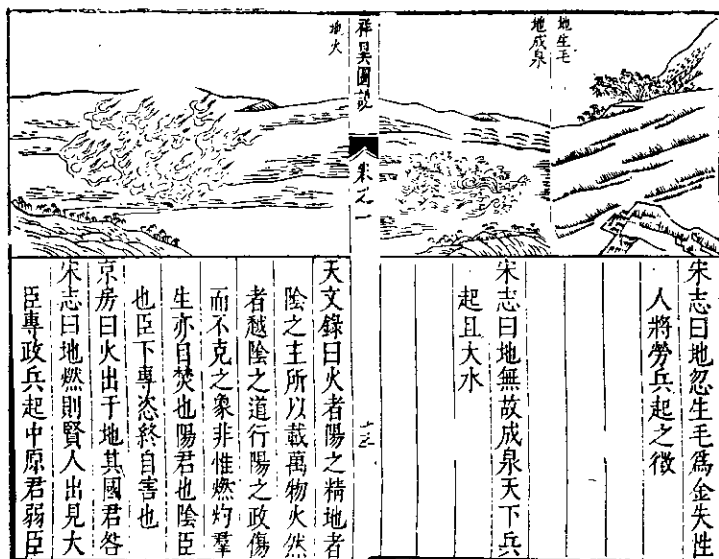 地生毛
宋志曰地忽生毛為金失性
人將勞兵起之徵
地成泉
宋志曰地無故成泉天下兵
起且大水
祥異圖說
卷之一
十三
地火
天文錄曰火者陽之精地者
陰之主所以載萬物火然
者越陰之道行陽之政傷
而不克之象非惟燃灼羣
生亦自焚也陽君也陰臣
也臣下專恣終自害也
京房曰火出于地其國君咎
宋志曰地燃則賢人出見大
臣專政兵起中原君弱臣